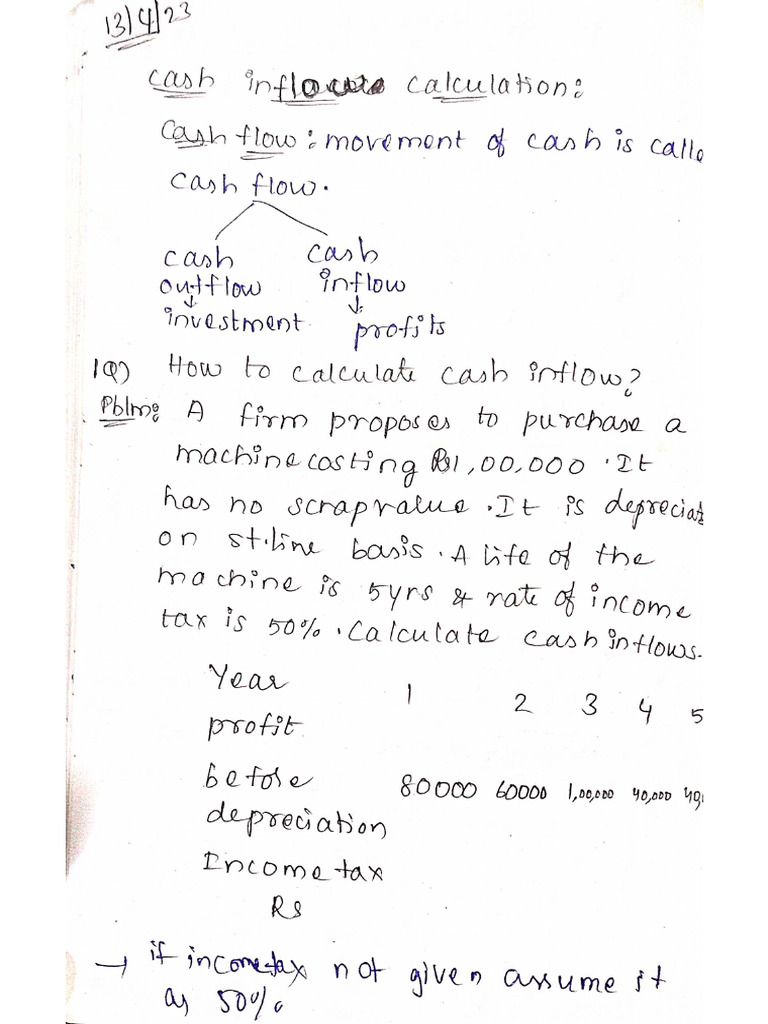 13/4/23
cash inflows calculation:
Cash flow: movement of cash is calle
cash flow.
cash cash
outflow inflow
↓ ↓
investment profits
1Q) How to calculate cash inflow?
Pblm: A firm proposes to purchase a
machine costing Rs1,00,000. It
has no scrap value. It is depreciat
on st.line basis. A life of the
machine is 5yrs & rate of income
tax is 50%. Calculate cash inflows.
Year 1 2 3 4 5
profit
before 80000 60000 1,00,000 40,000
depreciation
Income tax
Rs
→ if income tax not given assume it
as 50%